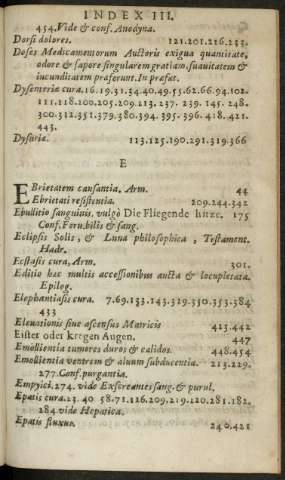 INDEX III.
454. Vide & conf. Anodyna.
Dorsi dolores. 121.201.216.233.
Doses Medicamentorum Auctoris exigua quantitate,
odore & sapore singularem gratiam, suavitatem &
iucunditatem præferunt. In præfat.
Dysenteriæ cura. 16.19.31.34.40.49.53.62.66.94.102.
111.118.100.205.209.213.237.239.145.248.
300.312.351.379.380.394.395.396.418.421.
443.
Dysuria. 113.125.190.291.319.366
E
EBrietatem causantia. Arm. 44
Ebrietati resistentia. 209.244.342
Ebullitio sanguinis. vulgò Die Fliegende hitze. 175
Conf. Feru. bilis & sang.
Eclipsis Solis, & Lunæ philosophica, Testament.
Hadr.
Ecstasis cura, Arm. 301.
Editio hæc multis accessionibus aucta & locupletata.
Epilog.
Elephantiasis cura. 7.69.133.143.329.330.353.384
433
Eleuationis siue ascensus Matricis 415.442
Eister oder kregen Augen. 447
Emollientia tumores duros & calidos. 448.454
Emollientia ventrem & aluum subducentia. 213.229.
277. Conf. purgantia.
Empyici. 274. vide Exscreantes sang. & purul.
Epatis cura. 23.40 58.71.126.209.219.120.281.182.
284. vide Hepatica.
Epatis fluxus. 240.421